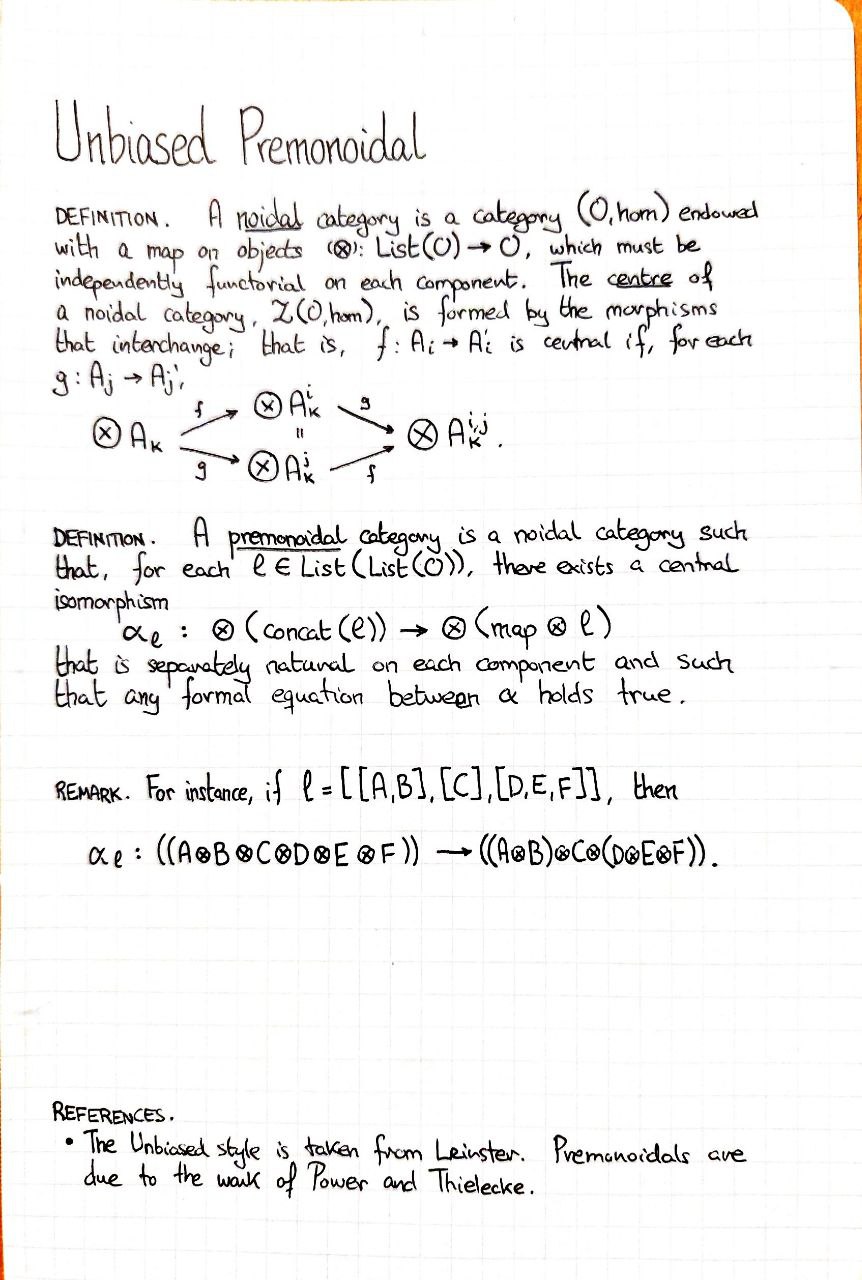 Unbiased Premonoidal
DEFINITION. A noidal category is a category (O,hom) endowed
with a map on objects (⊗): List(O) → O, which must be
independently functorial on each component. The centre of
a noidal category, Z(O,hom), is formed by the morphisms
that interchange; that is, f: Aᵢ → A'ᵢ is central if, for each
g: Aⱼ → Aⱼ',
f ⊗ Aₖⁱ g
⊗ Aₖ = ⊗ Aₖⁱ,ʲ.
g ⊗ Aₖʲ f
DEFINITION. A premonoidal category is a noidal category such
that, for each ℓ ∈ List(List(O)), there exists a central
isomorphism
αℓ : ⊗ (concat(ℓ)) → ⊗ (map ⊗ ℓ)
that is separately natural on each component and such
that any formal equation between α holds true.
REMARK. For instance, if ℓ = [[A,B],[C],[D,E,F]], then
αℓ : ((A⊗B⊗C⊗D⊗E⊗F)) → ((A⊗B)⊗C⊗(D⊗E⊗F)).
REFERENCES.
• The Unbiased style is taken from Leinster. Premonoidals are
due to the work of Power and Thielecke.